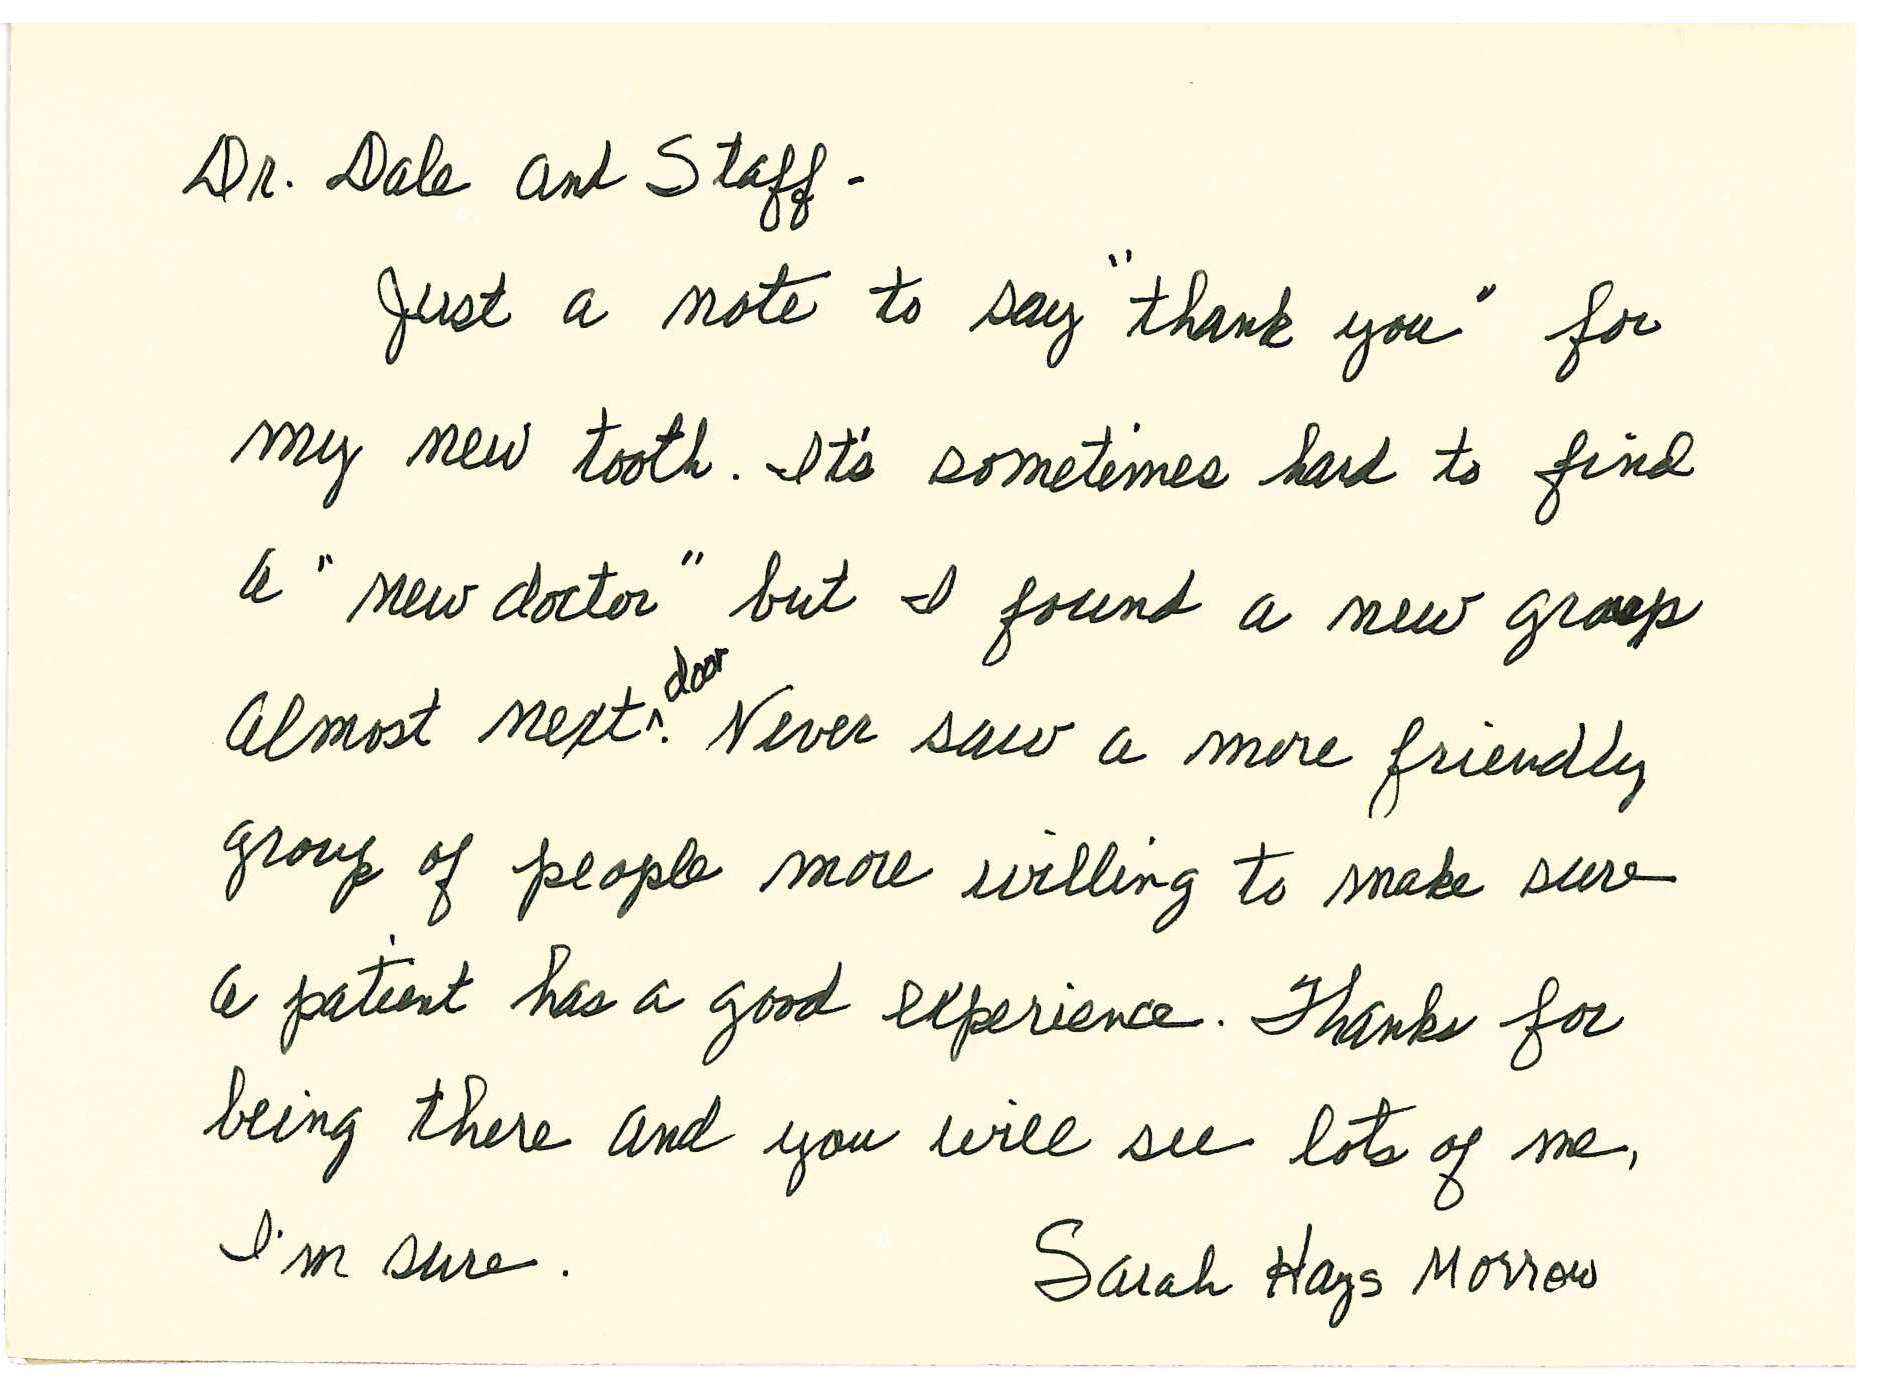 Dr. Dale and Staff -
Just a note to say "thank you" for
my new tooth. It's sometimes hard to find
a "new doctor" but I found a new group
almost next ^door. Never saw a more friendly
group of people more willing to make sure
a patient has a good experience. Thanks for
being there and you will see lots of me,
I'm sure. Sarah Hays Morrow